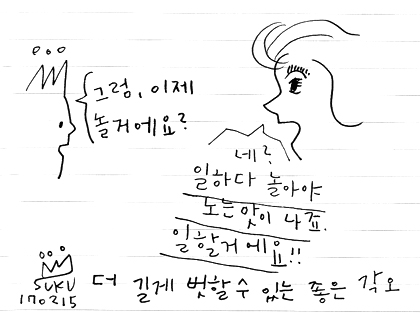 그럼, 이제
놀거에요?
네?
일하다 놀아야
노는맛이 나죠.
일할거에요!!
더 길게 벗할수 있는 좋은 각오
SUKU
170215